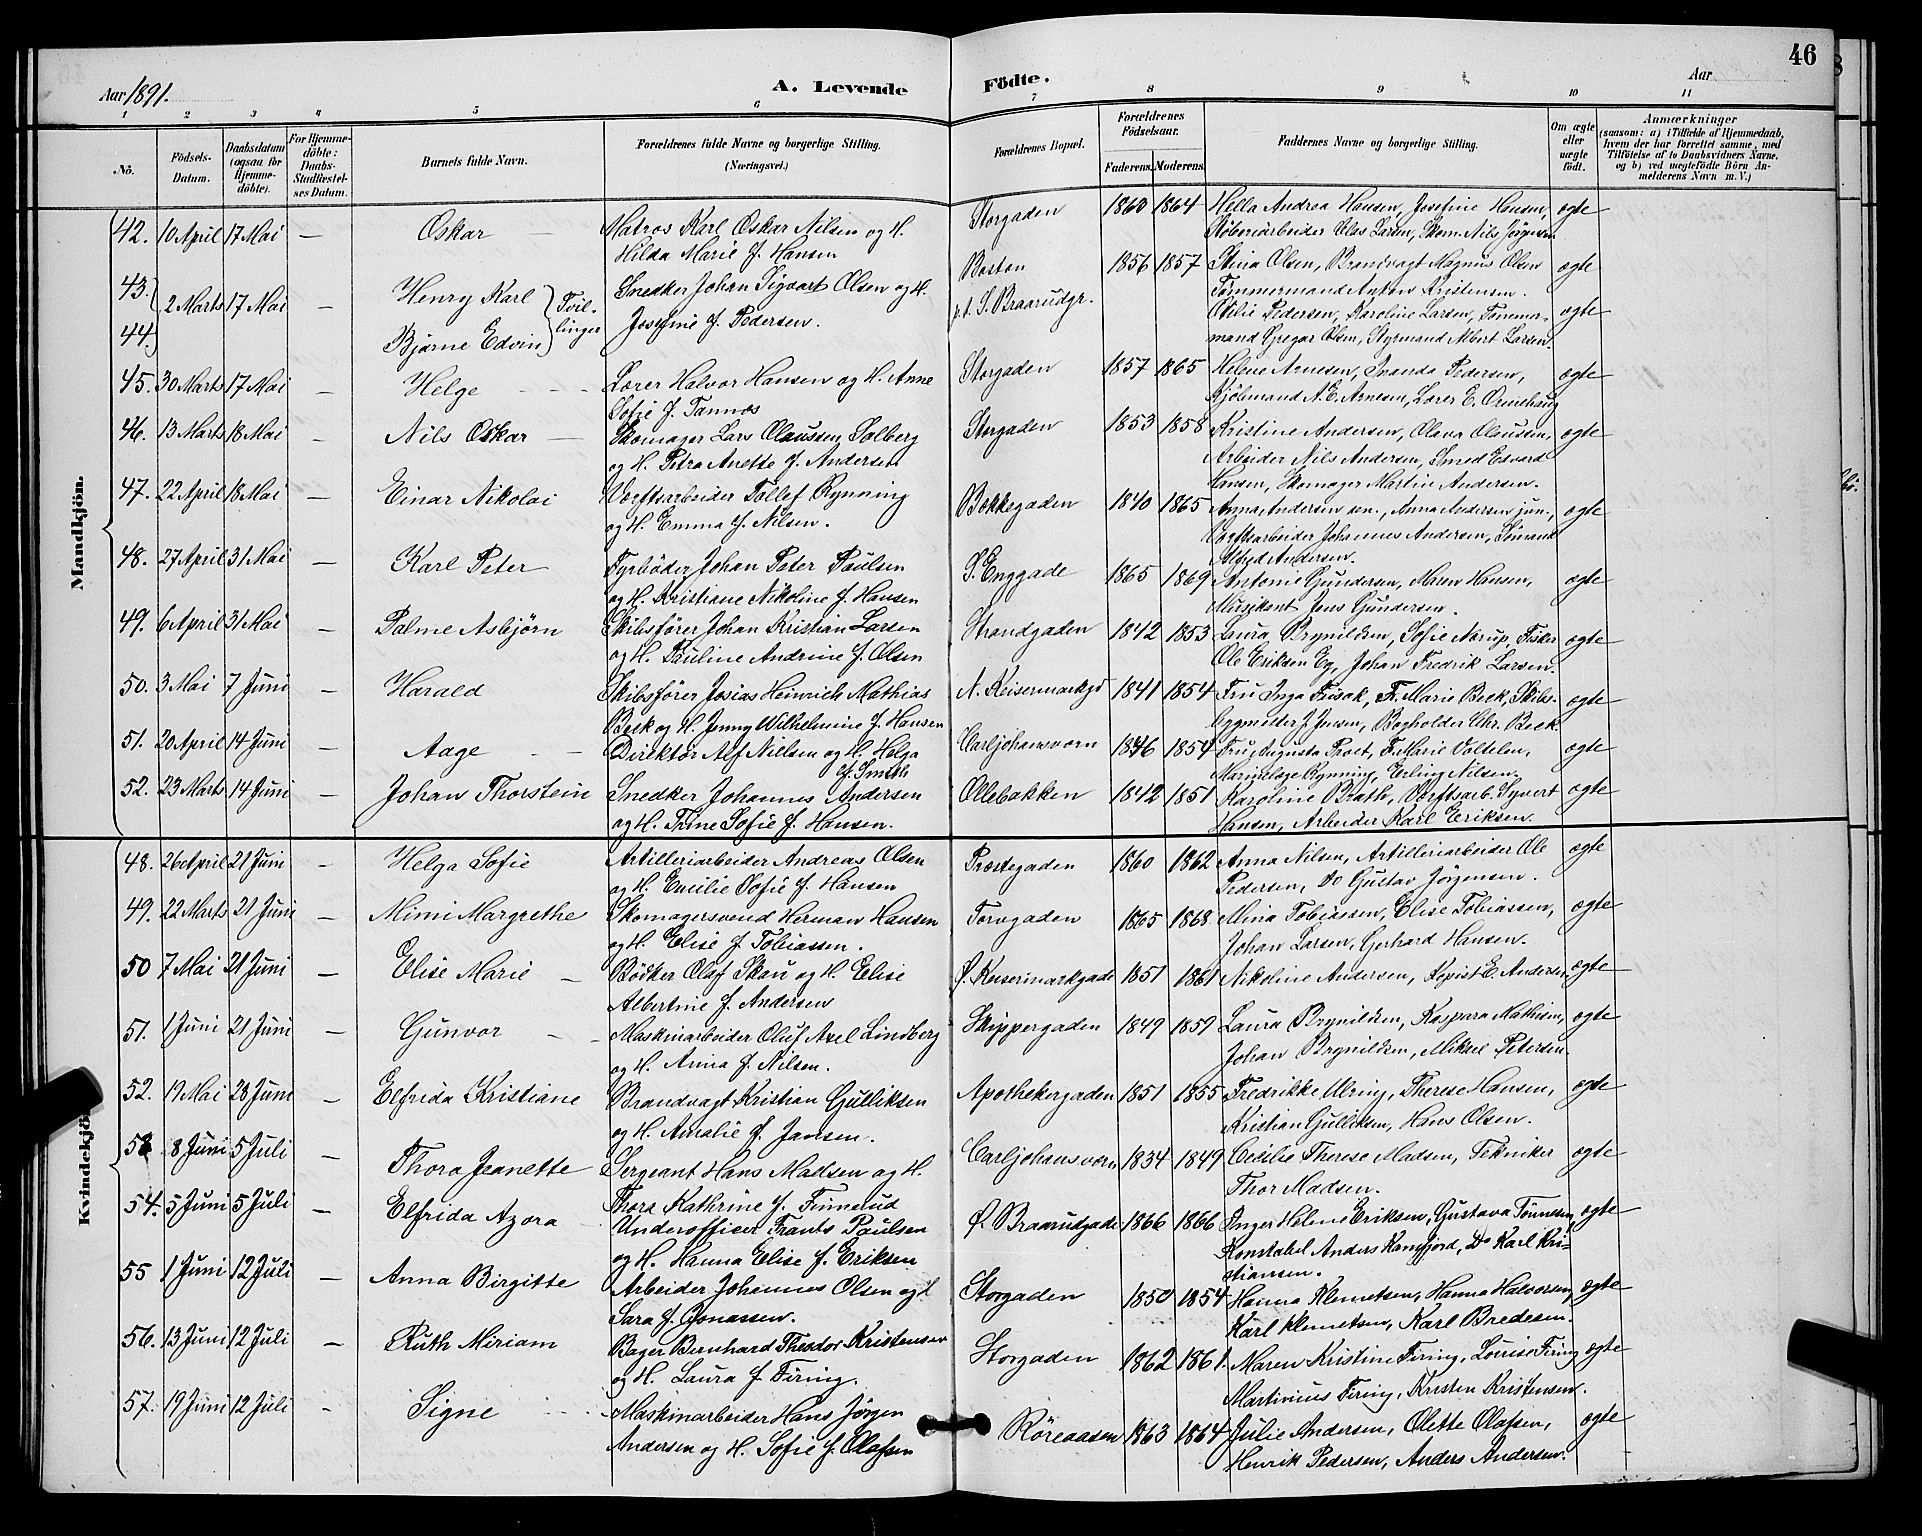 46
Aar 1891.
A. Levende Födte.
Aar
1 2 3 4 5 6 7 8 9 10 11
Nö.
Födsels-Datum.
Daabsdatum (ogsaa för Hjemme-döbte).
For Hjemme-döbte: Daabs-Stadfæstel-ses Datum.
Barnets fulde Navn.
Forældrenes fulde Navne og borgerlige Stilling. (Næringsvei.)
Forældrenes Bopæl.
Forældrenes Födselsaar.
Faderens. Moderens.
Faddernes Navne og borgerlige Stilling.
Om ægte eller uægte födt.
Anmærkninger (saasom: a) i Tilfælde af Hjemmedaab, hvem der har forrettet samme, med Tilföielse af to Daabsvidners Navne, og b) ved uægtefödte Börn An-melderens Navn m. V.)
Mandkjön.
42. 10 April 17 Mai — Oskar — Matros Karl Oskar Nilsen og H. Storgaden 1860 1864 Hella Andrea Hansen, Josefine Hansen, ægte
Hilda Marie f. Hansen Støberiarbeider Klas Larsen, Skom. Nils Jørgensen
43. 2 Marts 17 Mai — Henry Karl } Tvil- Snedker Johan Sigvart Olsen og H. Boston 1856 1857 Stina Olsen, Brandvagt Magnus Olsen ægte
Tømmermand Anton Kristensen.
44. Bjarne Edvin } linger Josefine f. Pedersen. p.t. S. Braarudgr. Otilie Pedersen, Karoline Larsen, Tømmer- ægte
mand Gregar Olsen, Styrmand Albert Larsen.
45. 30 Marts 17 Mai — Helge - - - Lærer Halvor Hansen og H. Anne Storgaden 1857 1865 Helene Arnesen, Inanda Pedersen, ægte
Sofie f. Tannæs Kjøbmand N. E. Arnesen, Lærer E. Ormehaug
46. 13 Marts 18 Mai — Nils Oskar — Skomager Lars Olaussen Solberg Storgaden 1853 1858 Kristine Andersen, Olava Olaussen, ægte
og H. Petra Anette f. Andersen Arbeider Nils Andersen, Smed Edvard
Hansen, Skomager Martin Andersen.
47. 22 April 18 Mai — Einar Nikolai Værftsarbeider Tollef Rynning Bækkegaden 1840 1865 Anna Andersen sen., Anna Andersen jun., ægte
og H. Emma f. Nilsen. Værftsarbeider Johannes Andersen, Sømand
Alfred Andersen.
48. 27 April 31 Mai — Karl Peter Fyrbøder Johan Peter Paulsen S. Enggade 1865 1869 Antonie Gundersen, Maren Hansen, ægte
og H. Kristiane Nikoline f. Hansen Musikant Jens Gundersen.
49. 6 April 31 Mai — Palme Asbjørn Skibsfører Johan Kristian Larsen Strandgaden 1842 1853 Laura Brynildsen, Sofie Nærup, Fisker ægte
og H. Pauline Andrine f. Olsen Ole Eriksen Eg, Johan Fredrik Larsen.
50. 3 Mai 7 Juni — Harald Skibsfører Josias Heinrich Mathias N. Keisermarkgd 1841 1854 Fru Inga Frisak, Fr. Marie Beck, Skibs- ægte
Beck og H. Jenny Wilhelmine f. Hansen byggmester J. Iversen, Bogholder Chr. Beck.
51. 20 April 14 Juni — Aage - - Direktør Alf Nielsen og H. Helga Carljohansværn 1846 1854 Fru Augusta Proet, F. Marie Voltelen, ægte
f. Smith Marinelæge Rynning, Erling Nilsen,
52. 23 Marts 14 Juni — Johan Thorstein Snedker Johannes Andersen Ollebakken 1842 1851 Karoline Brath, Værftsarb. Syvert ægte
og H. Trine Sofie f. Hansen. Hansen, Arbeider Karl Eriksen.
Kvindekjön.
48. 26 April 21 Juni - Helga Sofie Artilleriarbeider Andreas Olsen Præstegaden 1860 1862 Anna Nilsen, Artilleriarbeider Ole ægte
og H. Emilie Sofie f. Hansen Pedersen, Do Gustav Jørgensen.
49. 22 Marts 21 Juni — Mimi Margrethe Skomagersvend Herman Hansen Torvgaden 1865 1868 Mina Tobiassen, Elise Tobiassen, ægte
og H. Elise f. Tobiassen. Johan Larsen, Gerhard Hansen.
50 7 Mai 21 Juni — Elise Marie — Bødker Olaf Skau og H. Elise Ø. Keisermarkgade 1851 1861 Nikoline Andersen, Kopist E. Andersen ægte
Albertine f. Andersen
51. 1 Juni 21 Juni — Gunvor - - Maskinarbeider Oluf Axel Lindberg Skippergaden 1849 1859 Laura Brynildsen, Kaspara Mathisen, ægte
og H. Anna f. Nilsen. Johan Brynildsen, Mikael Petersen.
52. 19 Mai 28 Juni — Elfrida Kristiane Brandvagt Kristian Gulliksen Apothekergaden 1851 1855 Fredrikke Ulring, Therese Hansen, ægte
og H. Amalie f. Jansen. Kristian Gulliksen, Hans Olsen.
53 8 Juni 5 Juli — Thora Jeanette Sergeant Hans Madsen og H. Carljohansværn 1834 1849 Cecilie Therese Madsen, Tekniker ægte
Thora Kathrine f. Finnerud Thor Madsen.
54. 5 Juni 5 Juli — Elfrida Azora Underofficer Frants Paulsen Ø. Braarudgade 1866 1866 Inger Helene Eriksen, Gustava Tønnesen, ægte
og H. Hanna Elise f. Eriksen Konstabel Anders Ramfjord, Do Karl Kri-
stiansen.
55 1 Juni 12 Juli — Anna Birgitte Arbeider Johannes Olsen og H Storgaden 1850 1854 Hanna Klemetsen, Hanna Halvorsen, ægte
Sara f. Jonassen. Karl Klemetsen, Karl Bredesen.
56. 13 Juni 12 Juli — Ruth Miriam Bager Bernhard Theodor Kristensen Storgaden 1862 1861. Maren Kristine Firing, Louise Firing ægte
og H. Laura f. Firing. Martinius Firing, Kristen Kristensen.
57. 19 Juni 12 Juli - Signe - Maskinarbeider Hans Jørgen Røreaasen 1863 1864 Julie Andersen, Olette Olafsen, ægte
Andersen og H. Sofie f. Olafsen Henrik Pedersen, Anders Andersen.